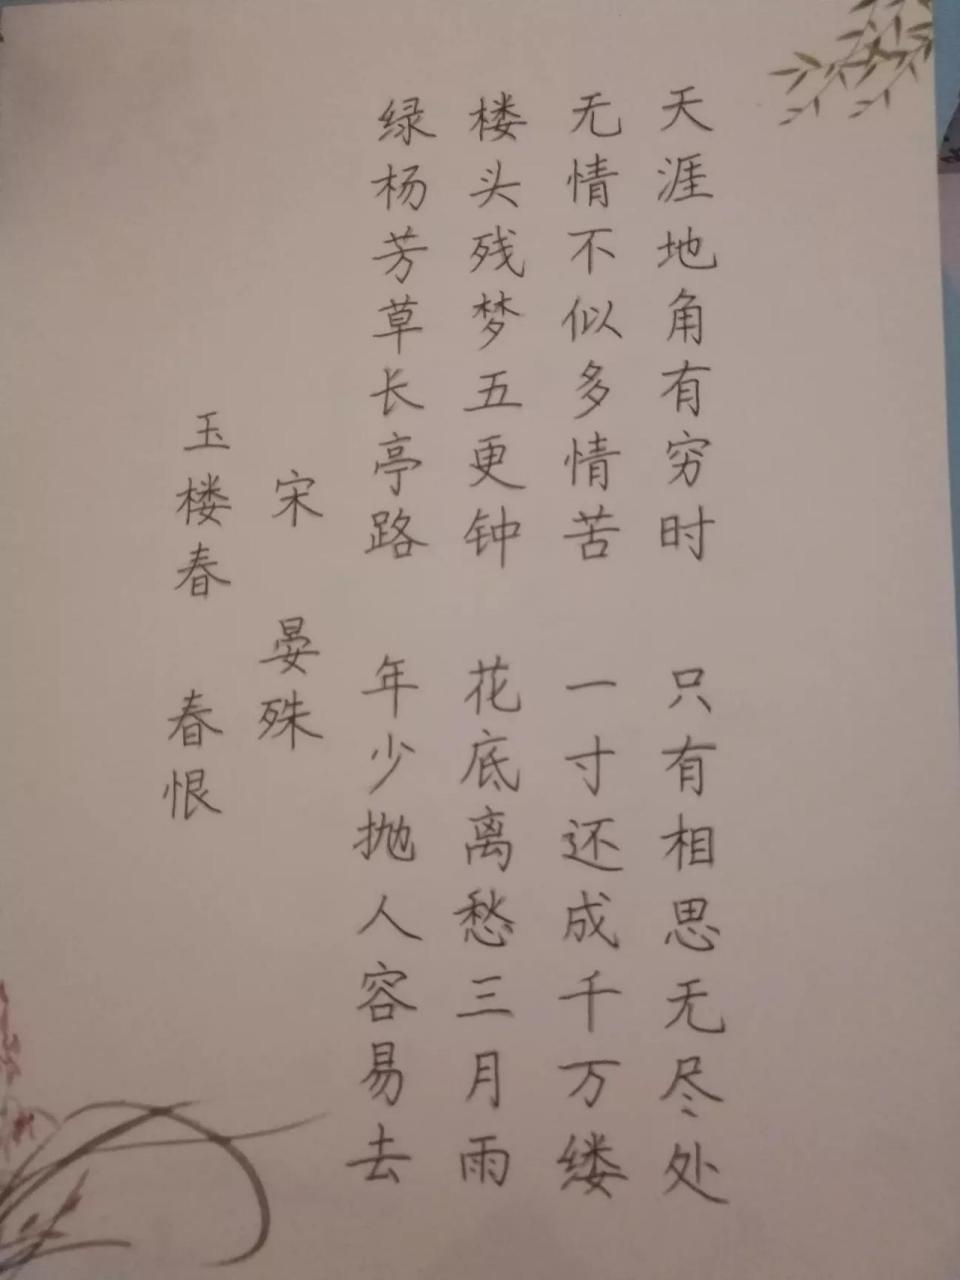 玉楼春 春恨
宋 晏殊
绿杨芳草长亭路 年少抛人容易去
楼头残梦五更钟 花底离愁三月雨
无情不似多情苦 一寸还成千万缕
天涯地角有穷时 只有相思无尽处